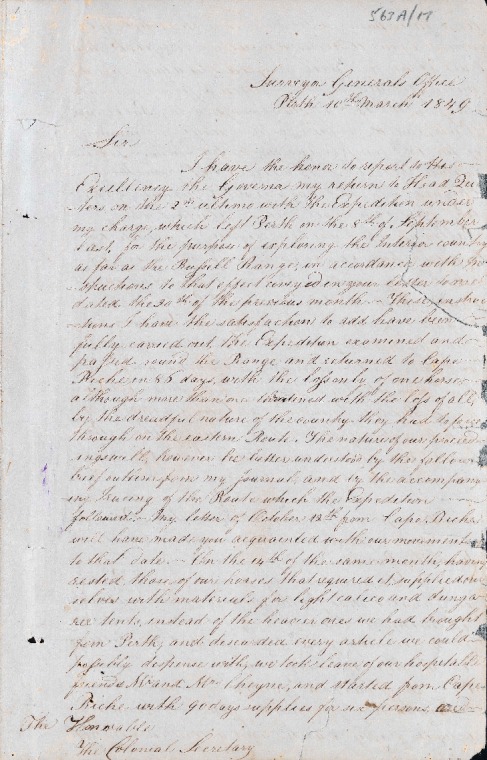 563A/17
Surveyor Generals Office
Perth 10th March 1849
Sir
I have the honor to report to His
Excellency the Governor my return to Head Qua
-ters on the 2d ultimo with the Expedition under
my charge, which left Perth on the 8th of September
last, for the purpose of exploring the Interior country
as far as the Russell Range, in accordance with In
-structions to that effect conveyed in your letter to me
dated the 30th of the previous month - These instruc
-tions I have the satisfaction to add have been
fully carried out, the Expedition examined and
passed round the Range and returned to Cape
Riche in 86 days, with the loss only of one horse
although more than once threatened with the loss of all,
by the dreadful nature of the country they had to pass
through on the eastern Route. The nature of our proceed
-ings will however be better understood by the follow
brief outline from my journal, and by the accompany
ing tracing of the Route which the Expedition
followed. - My letter of October 12th from Cape Riche
will have made you acquainted with our movements
to that date. - On the 14th of the same month, having
rested those of our horses that required it, supplied our
selves with materials for light calico and dunga
-ree tents, instead of the heavier ones we had brought
from Perth, and discarded every article we could
possibly dispense with, we took leave of our hospitable
friends Mr and Mrs Cheyne, and started from Cape
Riche with 90 days supplies for six persons
The Honorable
The Colonial Secretary